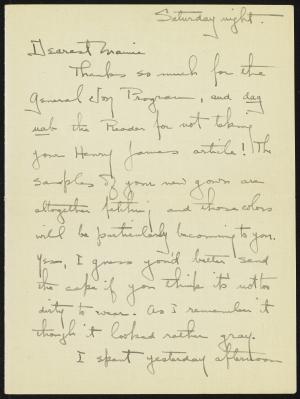 Saturday night.
Dearest Mamie
Thanks so much for the
General Program, and dag
nab the Reader for not taking
your Henry James article! The
samples of your new gown are
altogether fetching and those colors
will be particularly becoming to you.
Yes, I guess you'd better send
the cape if you think it's not too
dirty to wear. As I remember it
though it looked rather gray.
I spent yesterday afternoon